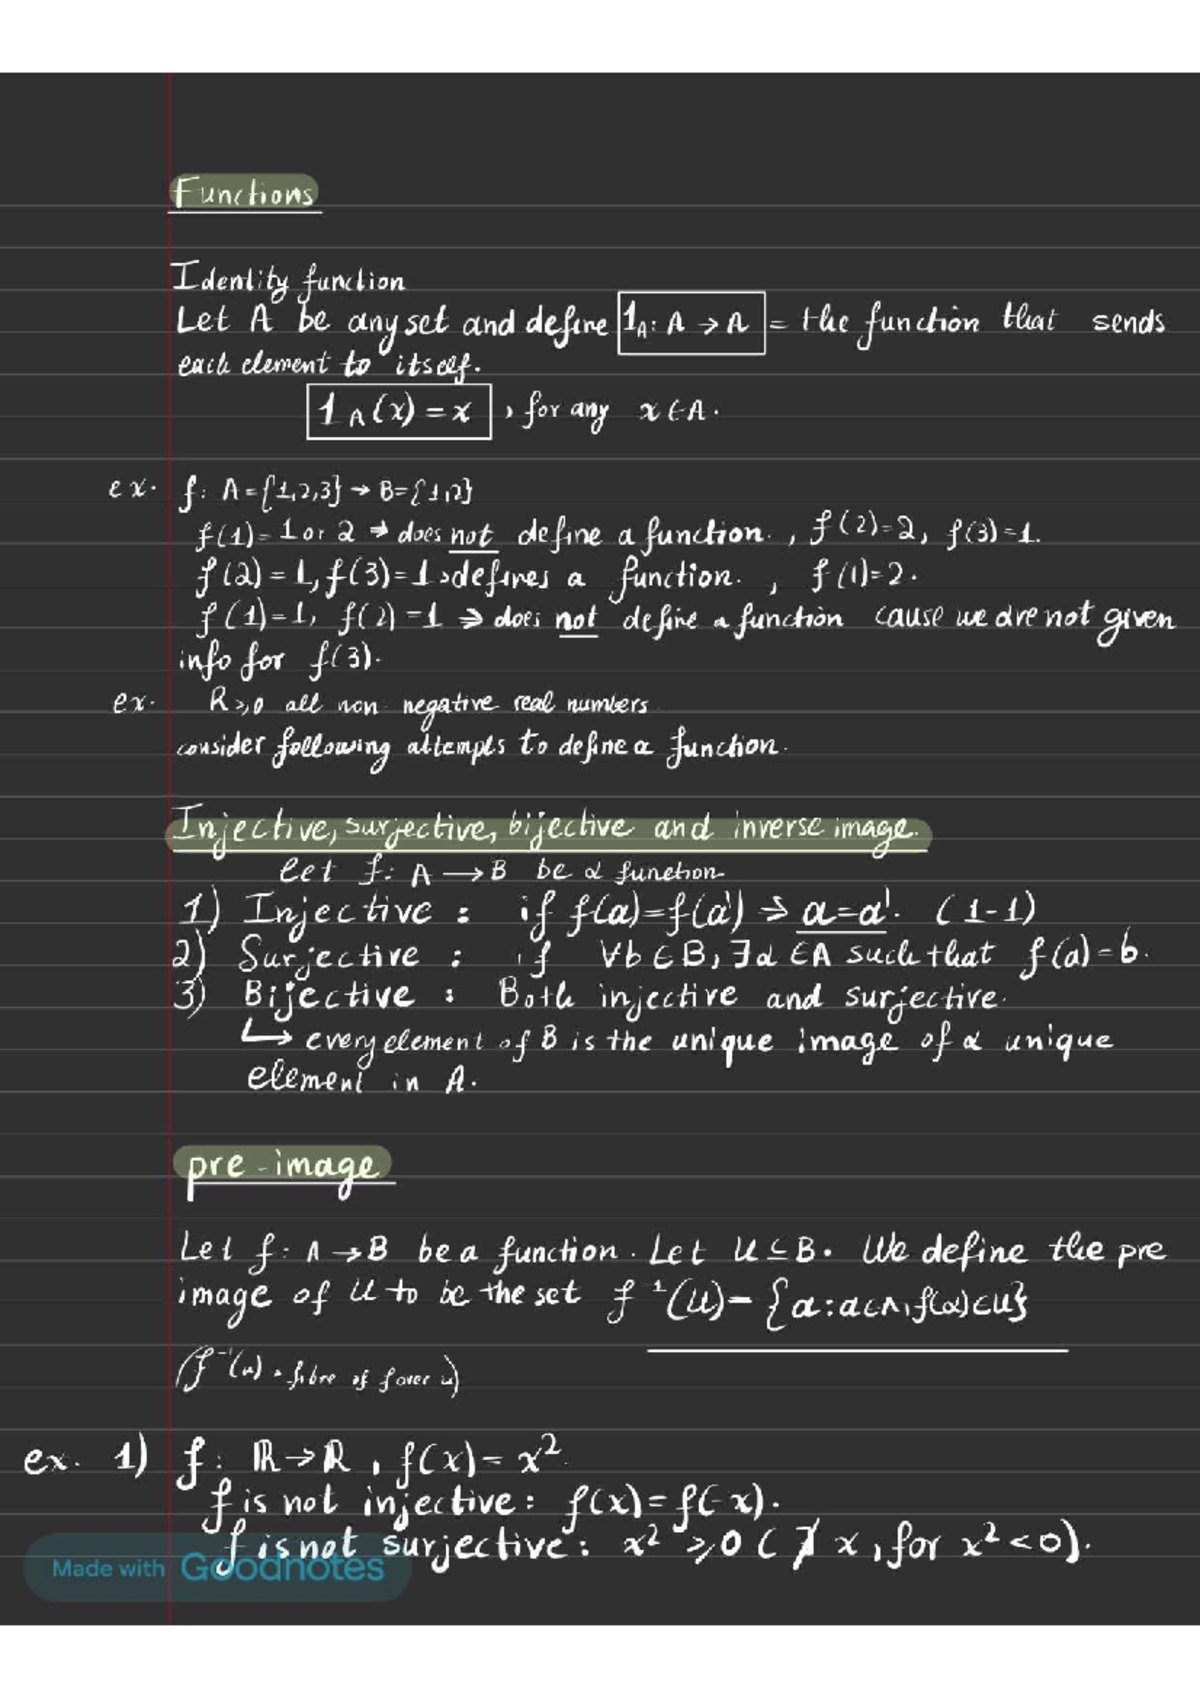 Functions
Identity function
Let A be any set and define 1_A: A → A = the function that sends
each element to itself.
1_A(x) = x , for any x ∈ A.
ex. f: A={1,2,3} → B={1,2}
f(1)= 1 or 2 → does not define a function. , f(2)=2, f(3)=1.
f(2)=1, f(3)=1 → defines a function. , f(1)=2.
f(1)=1, f(2)=1 ⇒ does not define a function cause we are not given
info for f(3).
ex. R≥0 all non negative real numbers
consider following attempts to define a function.
Injective, surjective, bijective and inverse image.
Let f: A → B be a function
1) Injective : if f(a)=f(a') ⇒ a=a'. (1-1)
2) Surjective : if ∀b∈B, ∃a∈A such that f(a)=b.
3) Bijective : Both injective and surjective.
↳ every element of B is the unique image of a unique
element in A.
pre-image
Let f: A → B be a function. Let U ⊆ B. We define the pre
image of U to be the set f⁻¹(U)= {a: a∈A, f(a)∈U}
(f⁻¹(u) = fibre of f over u)
ex. 1) f: ℝ→ℝ, f(x)= x²
f is not injective: f(x)=f(-x).
f is not surjective: x² ≥0 (∄ x, for x²<0).
Made with Goodnotes